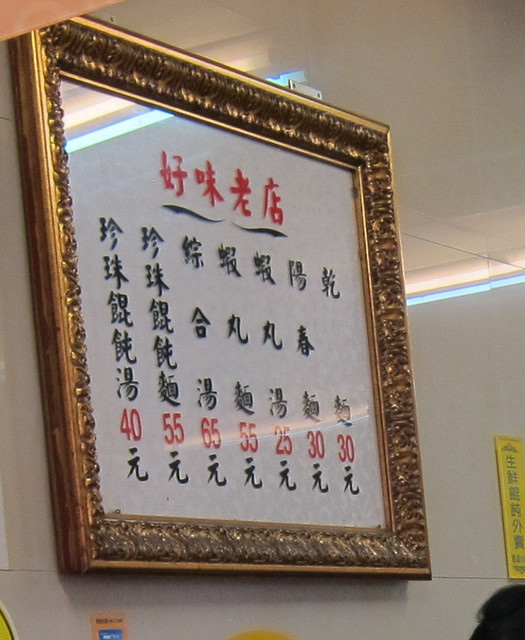 好味老店
乾麵30元
陽春麵30元
蝦丸湯25元
蝦丸麵55元
綜合湯65元
珍珠餛飩麵55元
珍珠餛飩湯40元
生鮮餛飩外賣